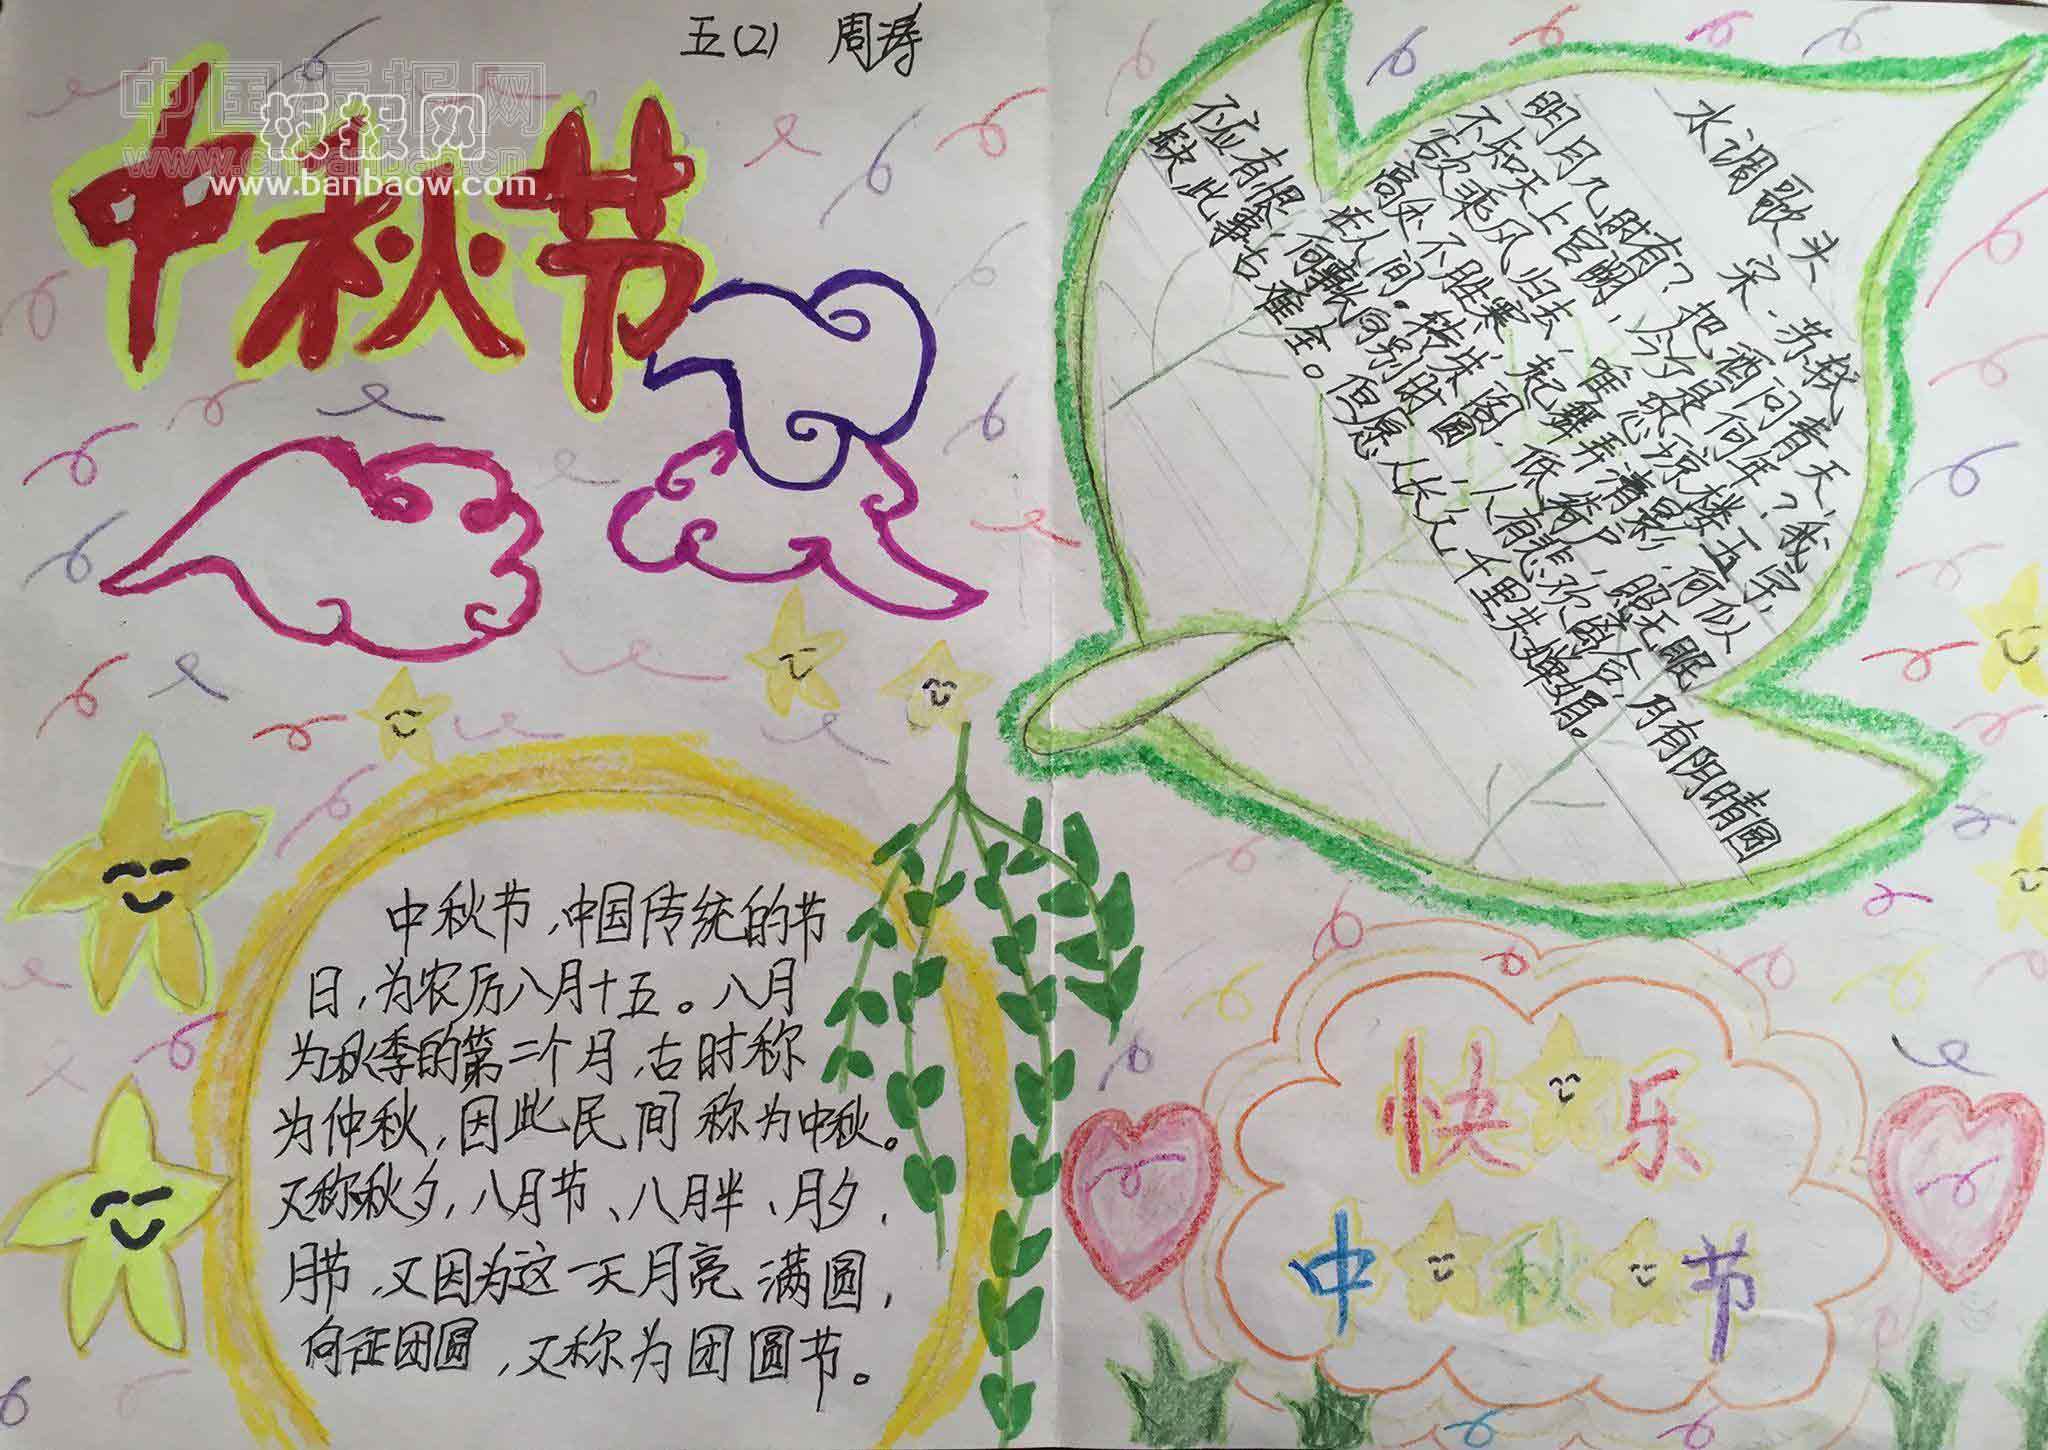 五(2) 周涛
中国板报网
www.chinabaow.cn
板报网
www.banbaow.com
中秋节
水调歌头
宋·苏轼
明月几时有？把酒问青天，
不知天上宫阙，今夕是何年？我
欲乘风归去，唯恐琼楼玉宇，
高处不胜寒，起舞弄清影，何似
在人间。转朱阁，低绮户，照无眠
不应有恨，何事长向别时圆，人有悲欢离合，月有阴晴圆
缺，此事古难全。但愿人长久，千里共婵娟。
中秋节，中国传统的节
日，为农历八月十五。八月
为秋季的第二个月，古时称
为仲秋，因此民间称为中秋。
又称秋夕，八月节、八月半、月夕，
月节，又因为这一天月亮满圆，
向征团圆，又称为团圆节。
快乐
中秋节